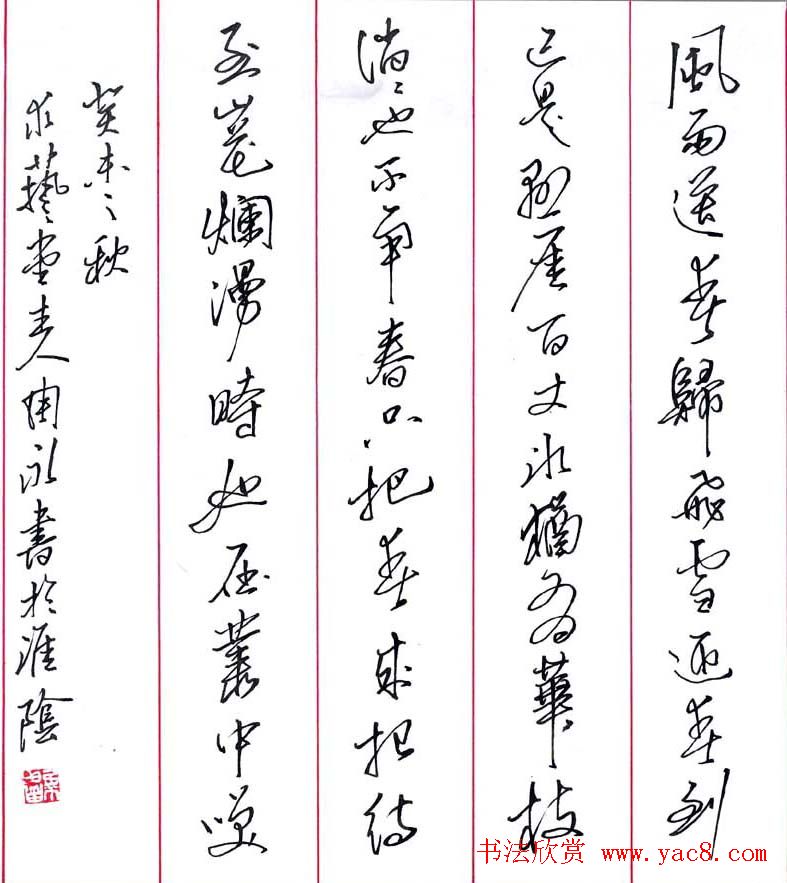 風雨送春歸飛雪迎春到
已是懸崖百丈冰猶有華枝
俏〻也不爭春只把春來報待
到山花爛漫時她在叢中笑
癸未之秋
求藝堂主人永書於淮陰
书法欣赏 www.yac8.com